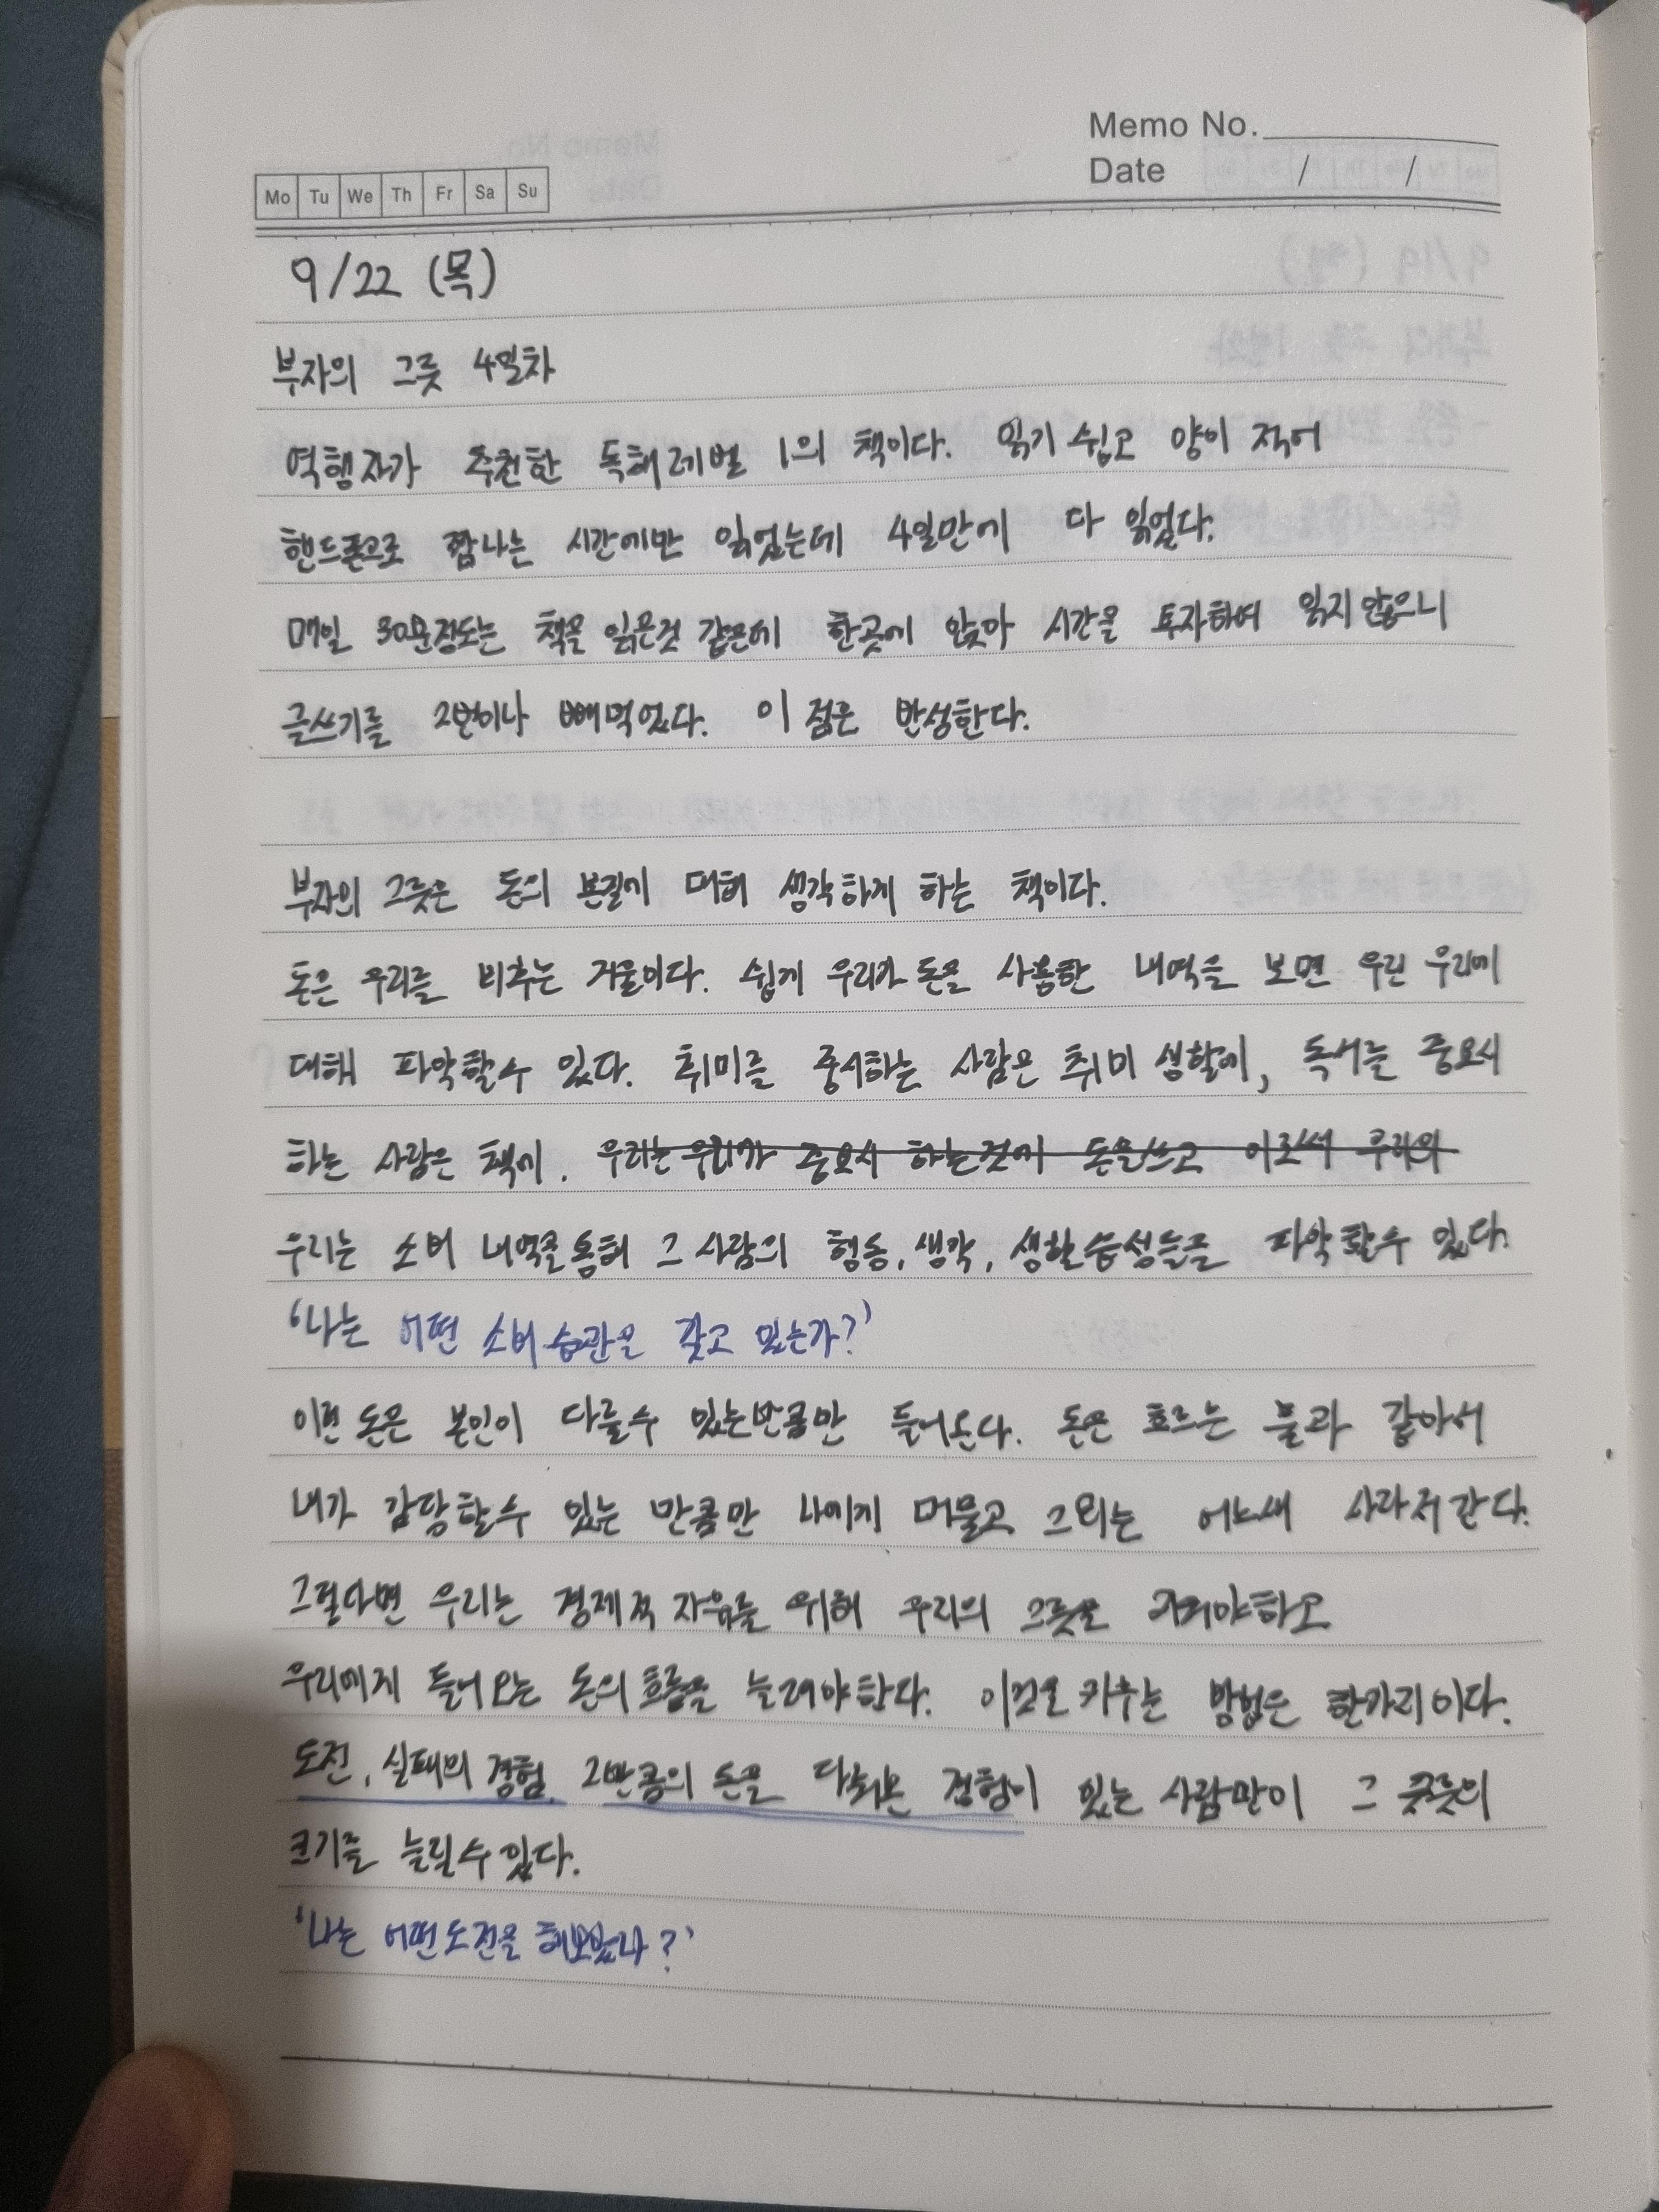 Memo No.
Date / /
Mo Tu We Th Fr Sa Su
9/22 (목)
부자의 그릇 4일차
역행자가 추천한 독해레벨 1의 책이다. 읽기 쉽고 양이 적어
핸드폰으로 짬나는 시간에만 읽었는데 4일만에 다 읽었다.
매일 30분정도는 책을 읽은것 같은데 한곳에 앉아 시간을 투자하여 읽지않으니
글쓰기를 2번이나 빼먹었다. 이 점은 반성한다.
부자의 그릇은 돈의 본질에 대해 생각하게 하는 책이다.
돈은 우리를 비추는 거울이다. 쉽게 우리가 돈을 사용한 내역을 보면 우린 우리에
대해 파악할수 있다. 취미를 중시하는 사람은 취미 생활에, 독서를 중요시
하는 사람은 책에. 우리는 우리가 중요시 하는것에 돈을쓰고 이로써 우리의
우리는 소비 내역을통해 그 사람의 행동, 생각, 생활습성들을 파악할수 있다.
'나는 어떤 소비습관을 갖고 있는가?'
이런 돈은 본인이 다룰수 있는만큼만 들어온다. 돈은 흐르는 물과 같아서
내가 감당할수 있는 만큼만 나에게 머물고 그외는 어느새 사라져간다.
그렇다면 우리는 경제적 자유를 위해 우리의 그릇을 키워야하고
우리에게 들어오는 돈의 흐름을 늘려야한다. 이것을 키우는 방법은 한가지이다.
도전, 실패의 경험. 그만큼의 돈을 다뤄본 경험이 있는 사람만이 그 그릇의
크기를 늘릴수있다.
'나는 어떤도전을 해보았나?'